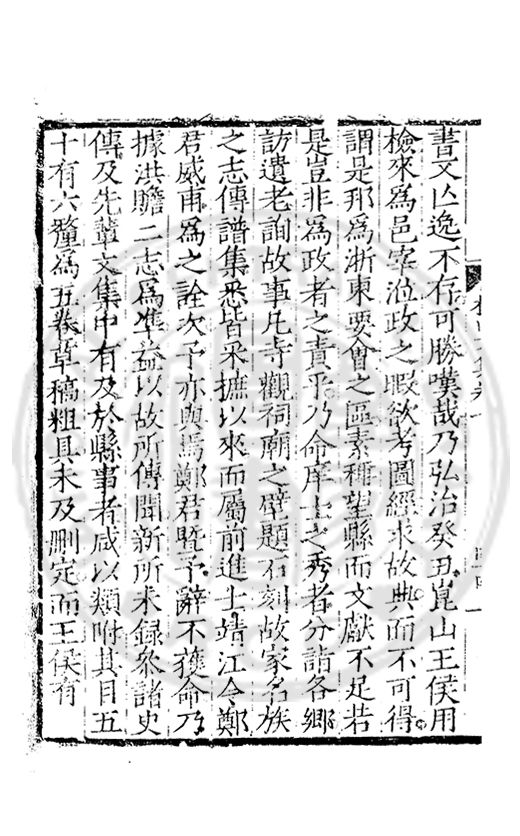 書文亾逸不存可勝嘆哉乃弘治癸丑崑山王侯用
檢來為邑宰涖政之暇欲考圖經求故典而不可得
謂是邦為浙東要會之區素稱望縣而文獻不足若
是豈非為政者之責乎乃命庠士之秀者分詣各鄉
訪遺老詢故事凡寺觀祠廟之壁題石刻故家名族
之志傳譜集悉皆采摭以來而屬前進士靖江令鄭
君威甫為之詮次予亦與焉鄭君暨予辭不獲命乃
據洪贍二志為準益以故所傳聞新所未録叅諸史
傳及先輩文集中有及於縣事者咸以類附其目五
十有六釐為五卷草稿粗具未及刪定而王侯有